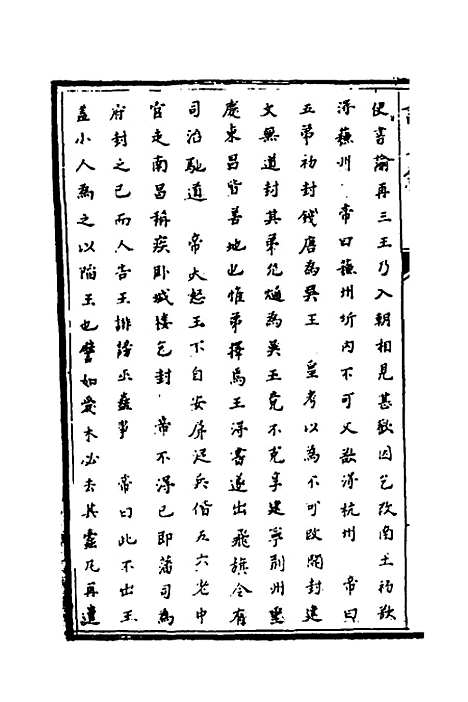 使書諭再三王乃入朝相見甚歡因乞改南土初欲
得蘇州　帝曰蘇州圻內不可又欲得杭州　帝曰
五弟初封錢唐為吳王　皇考以為不可改開封建
文無道封其弟允熥為吳王竟不克享建寧荊州重
慶東昌皆善地也惟弟擇焉王得書遂出飛旗令有
司治馳道　帝大怒王不自安屏從兵偕五六老中
官走南昌稱疾臥城樓乞封　帝不得已即藩司為
府封之已而人告王誹謗巫蠱事　帝曰此不出王
蓋小人為之以陷王也譬如愛木必去其蠹凡再遣